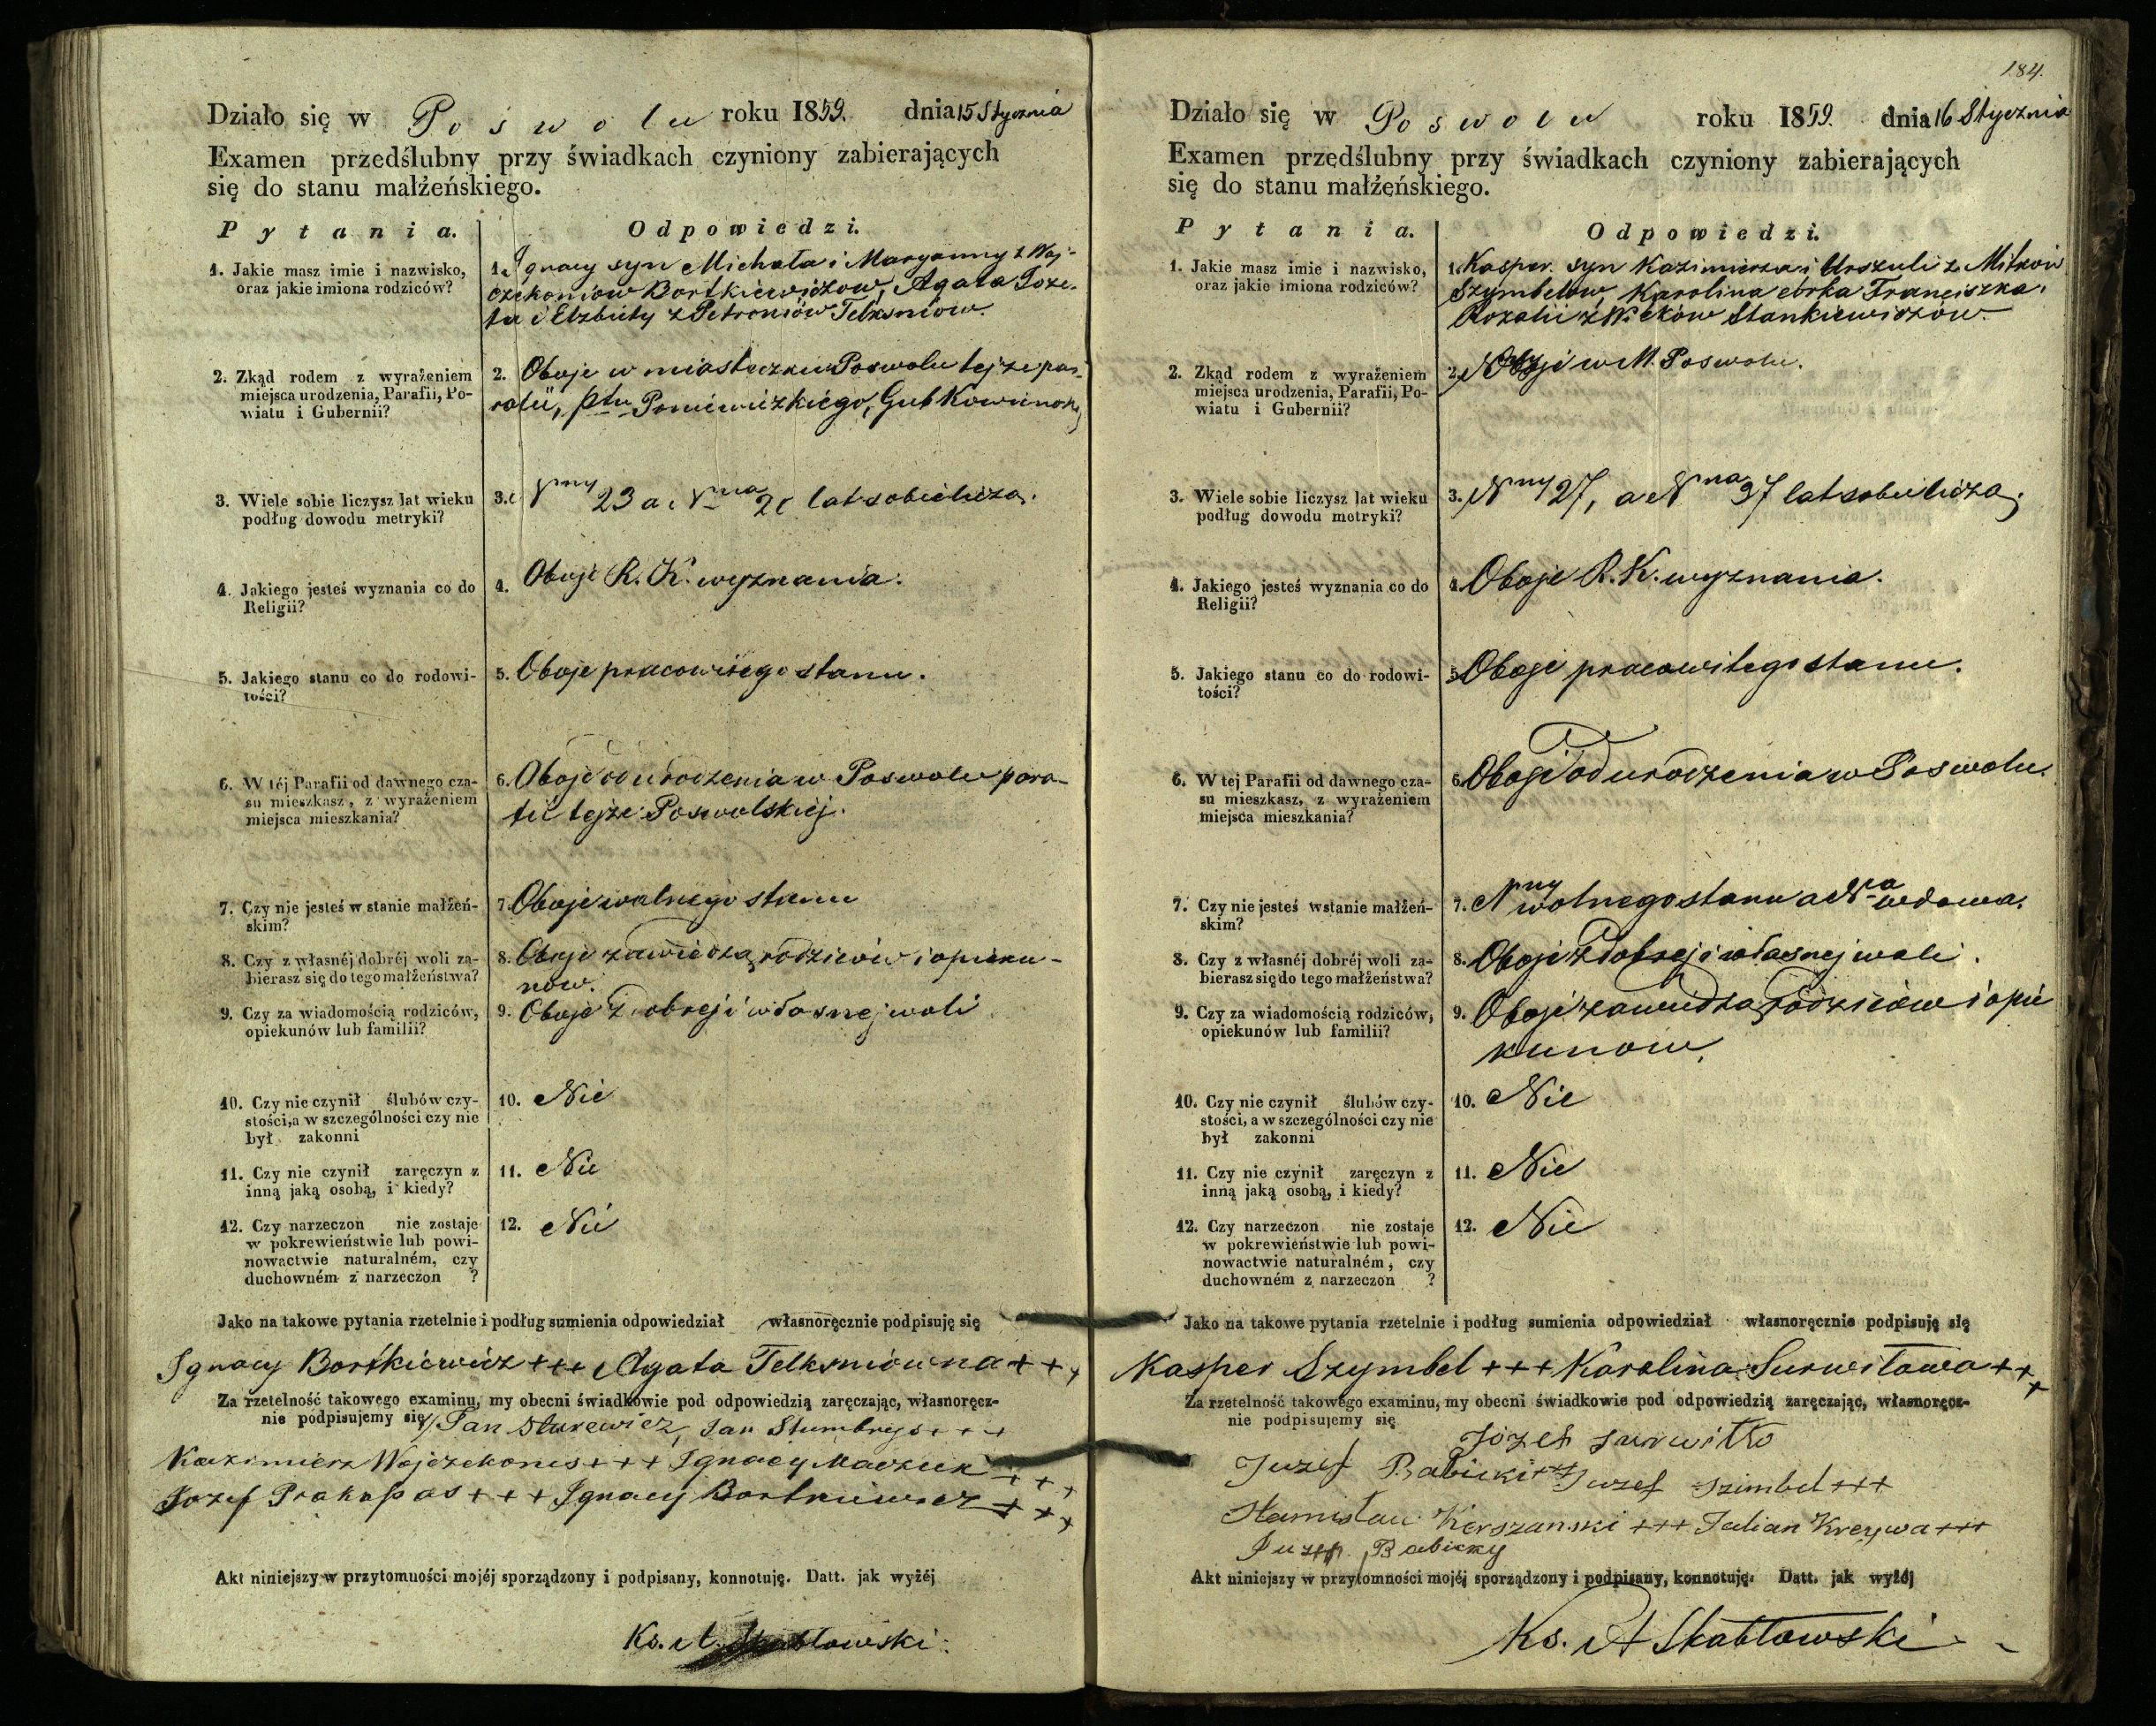 Działo się w Poswolu roku 1859. dnia 15 Stycznia
Examen przedślubny przy świadkach czyniony zabierających
się do stanu małżeńskiego.
Pytania. Odpowiedzi.
1. Jakie masz imie i nazwisko,
oraz jakie imiona rodziców?
1. Ignacy syn Michała i Maryanny z Woj-
czekoniow Bortkiewiczow, Agata Joze-
fa i Elzbiety z Petroniów Telksniow.
2. Zkąd rodem z wyrażeniem
miejsca urodzenia, Parafii, Po-
wiatu i Gubernii?
2. Oboje w miasteczku Poswolu tejze pa-
rafii, Ptu Poniewiezkiego, Gub Kowinskiej
3. Wiele sobie liczysz lat wieku
podług dowodu metryki?
3. Nny 23 a Nna 20 lat sobie licza.
4. Jakiego jesteś wyznania co do
Religii?
4. Oboje R. K. wyznania.
5. Jakiego stanu co do rodowi-
tości?
5. Oboje pracowitego stanu.
6. W téj Parafii od dawnego cza-
su mieszkasz, z wyrażeniem
miejsca mieszkania?
6. Oboje od urodzenia w Poswolu para-
fii tejże Poswolskiej.
7. Czy nie jesteś w stanie małżeń-
skim?
7. Oboje wolnego stanu
8. Czy z własnéj dobréj woli za-
bierasz się do tego małżeństwa?
8. Oboje za wiedzą rodziców i opieku-
now.
9. Czy za wiadomością rodziców,
opiekunów lub familii?
9. Oboje z dobrej i własnej woli
10. Czy nie czynił ślubów czy-
stości, a w szczególności czy nie
był zakonni
10. Nie
11. Czy nie czynił zaręczyn z
inną jaką osobą, i kiedy?
11. Nie
12. Czy narzeczon nie zostaje
w pokrewieństwie lub powi-
nowactwie naturalném, czy
duchowném z narzeczon ?
12. Nie
Jako na takowe pytania rzetelnie i podług sumienia odpowiedział własnoręcznie podpisuję się
Ignacy Bortkiewicz +++ Agata Telksniowna +++
Za rzetelność takowego examinu, my obecni świadkowie pod odpowiedzią zaręczając, własnoręcz-
nie podpisujemy się Jan Sturewicz, Jan Stumbrys +++
Kazimierz Wojczekonis +++ Ignacy Maczuk +++
Jozef Prakapas +++ Ignacy Bortkiewicz +++
Akt niniejszy w przytomności mojéj sporządzony i podpisany, konnotuję. Datt. jak wyżéj
Ks. A. Skabłowski
184.
Działo się w Poswolu roku 1859. dnia 16 Stycznia
Examen przedślubny przy świadkach czyniony zabierających
się do stanu małżeńskiego.
Pytania. Odpowiedzi.
1. Jakie masz imie i nazwisko,
oraz jakie imiona rodziców?
1. Kasper syn Kazimierza i Urszuli z Mitkow
Szymbelow, Karolina corka Franciszka i
Rozalii z Wickow Stankiewiczow.
2. Zkąd rodem z wyrażeniem
miejsca urodzenia, Parafii, Po-
wiatu i Gubernii?
2. Oboje w M. Poswolu.
3. Wiele sobie liczysz lat wieku
podług dowodu metryki?
3. Nny 27, a Nna 37 lat sobie licza.
4. Jakiego jesteś wyznania co do
Religii?
4. Oboje R. K. wyznania.
5. Jakiego stanu co do rodowi-
tości?
5. Oboje pracowitego stanu.
6. W tej Parafii od dawnego cza-
su mieszkasz, z wyrażeniem
miejsca mieszkania?
6. Oboje od urodzenia w Poswolu.
7. Czy nie jesteś wstanie małżeń-
skim?
7. Nny wolnego stanu a Nna wdowa.
8. Czy z własnéj dobréj woli za-
bierasz się do tego małżeństwa?
8. Oboje z dobrej i własnej woli.
9. Czy za wiadomością rodziców,
opiekunów lub familii?
9. Oboje za wiedzą rodziców i opie
kunow.
10. Czy nie czynił ślubów czy-
stości, a w szczególności czy nie
był zakonni
10. Nie
11. Czy nie czynił zaręczyn z
inną jaką osobą, i kiedy?
11. Nie
12. Czy narzeczon nie zostaje
w pokrewieństwie lub powi-
nowactwie naturalném, czy
duchowném z narzeczon ?
12. Nie
Jako na takowe pytania rzetelnie i podług sumienia odpowiedział własnoręcznie podpisuję się
Kasper Szymbel +++ Karolina Surwiłowa +++
Za rzetelność takowego examinu, my obecni świadkowie pod odpowiedzią zaręczając, własnoręcz-
nie podpisujemy się
Józef Surwiłło
Juzef Babicki +++ Juzef Szimbel +++
Stanisław Kirszanski +++ Julian Kreywa +++
Juzep Babicky
Akt niniejszy w przytomności mojéj sporządzony i podpisany, konnotuję. Datt. jak wyżéj
Ks. A Skabłowski